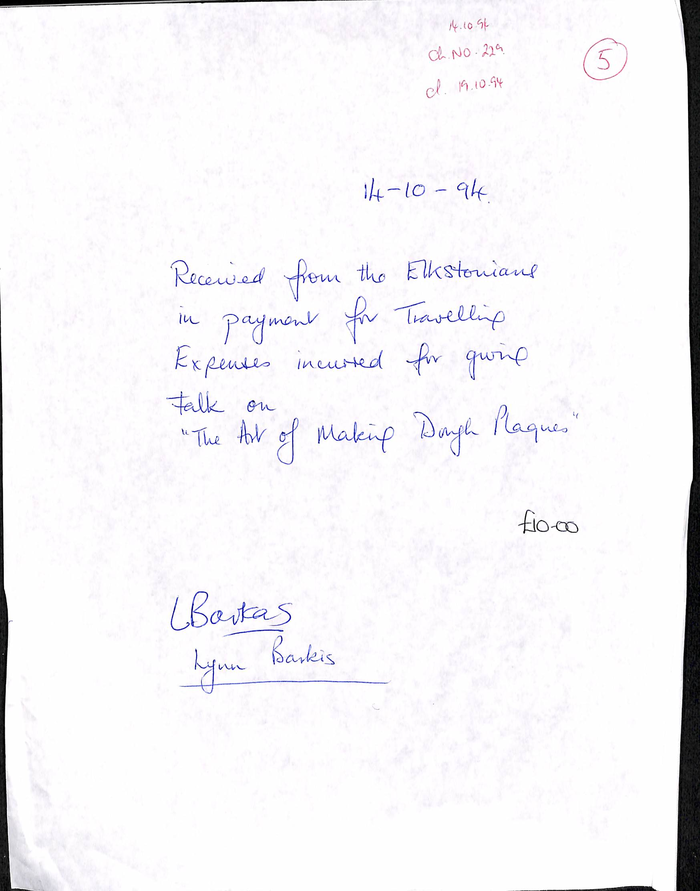 14.10.94
Ch. NO. 229
cl. 19.10.94
5
14-10-94.
Received from the Elkstonians
in payment for Travelling
Expenses incurred for giving
talk on
"The Art of Making Dough Plaques"
£10-00
LBarkas
Lynn Barkis